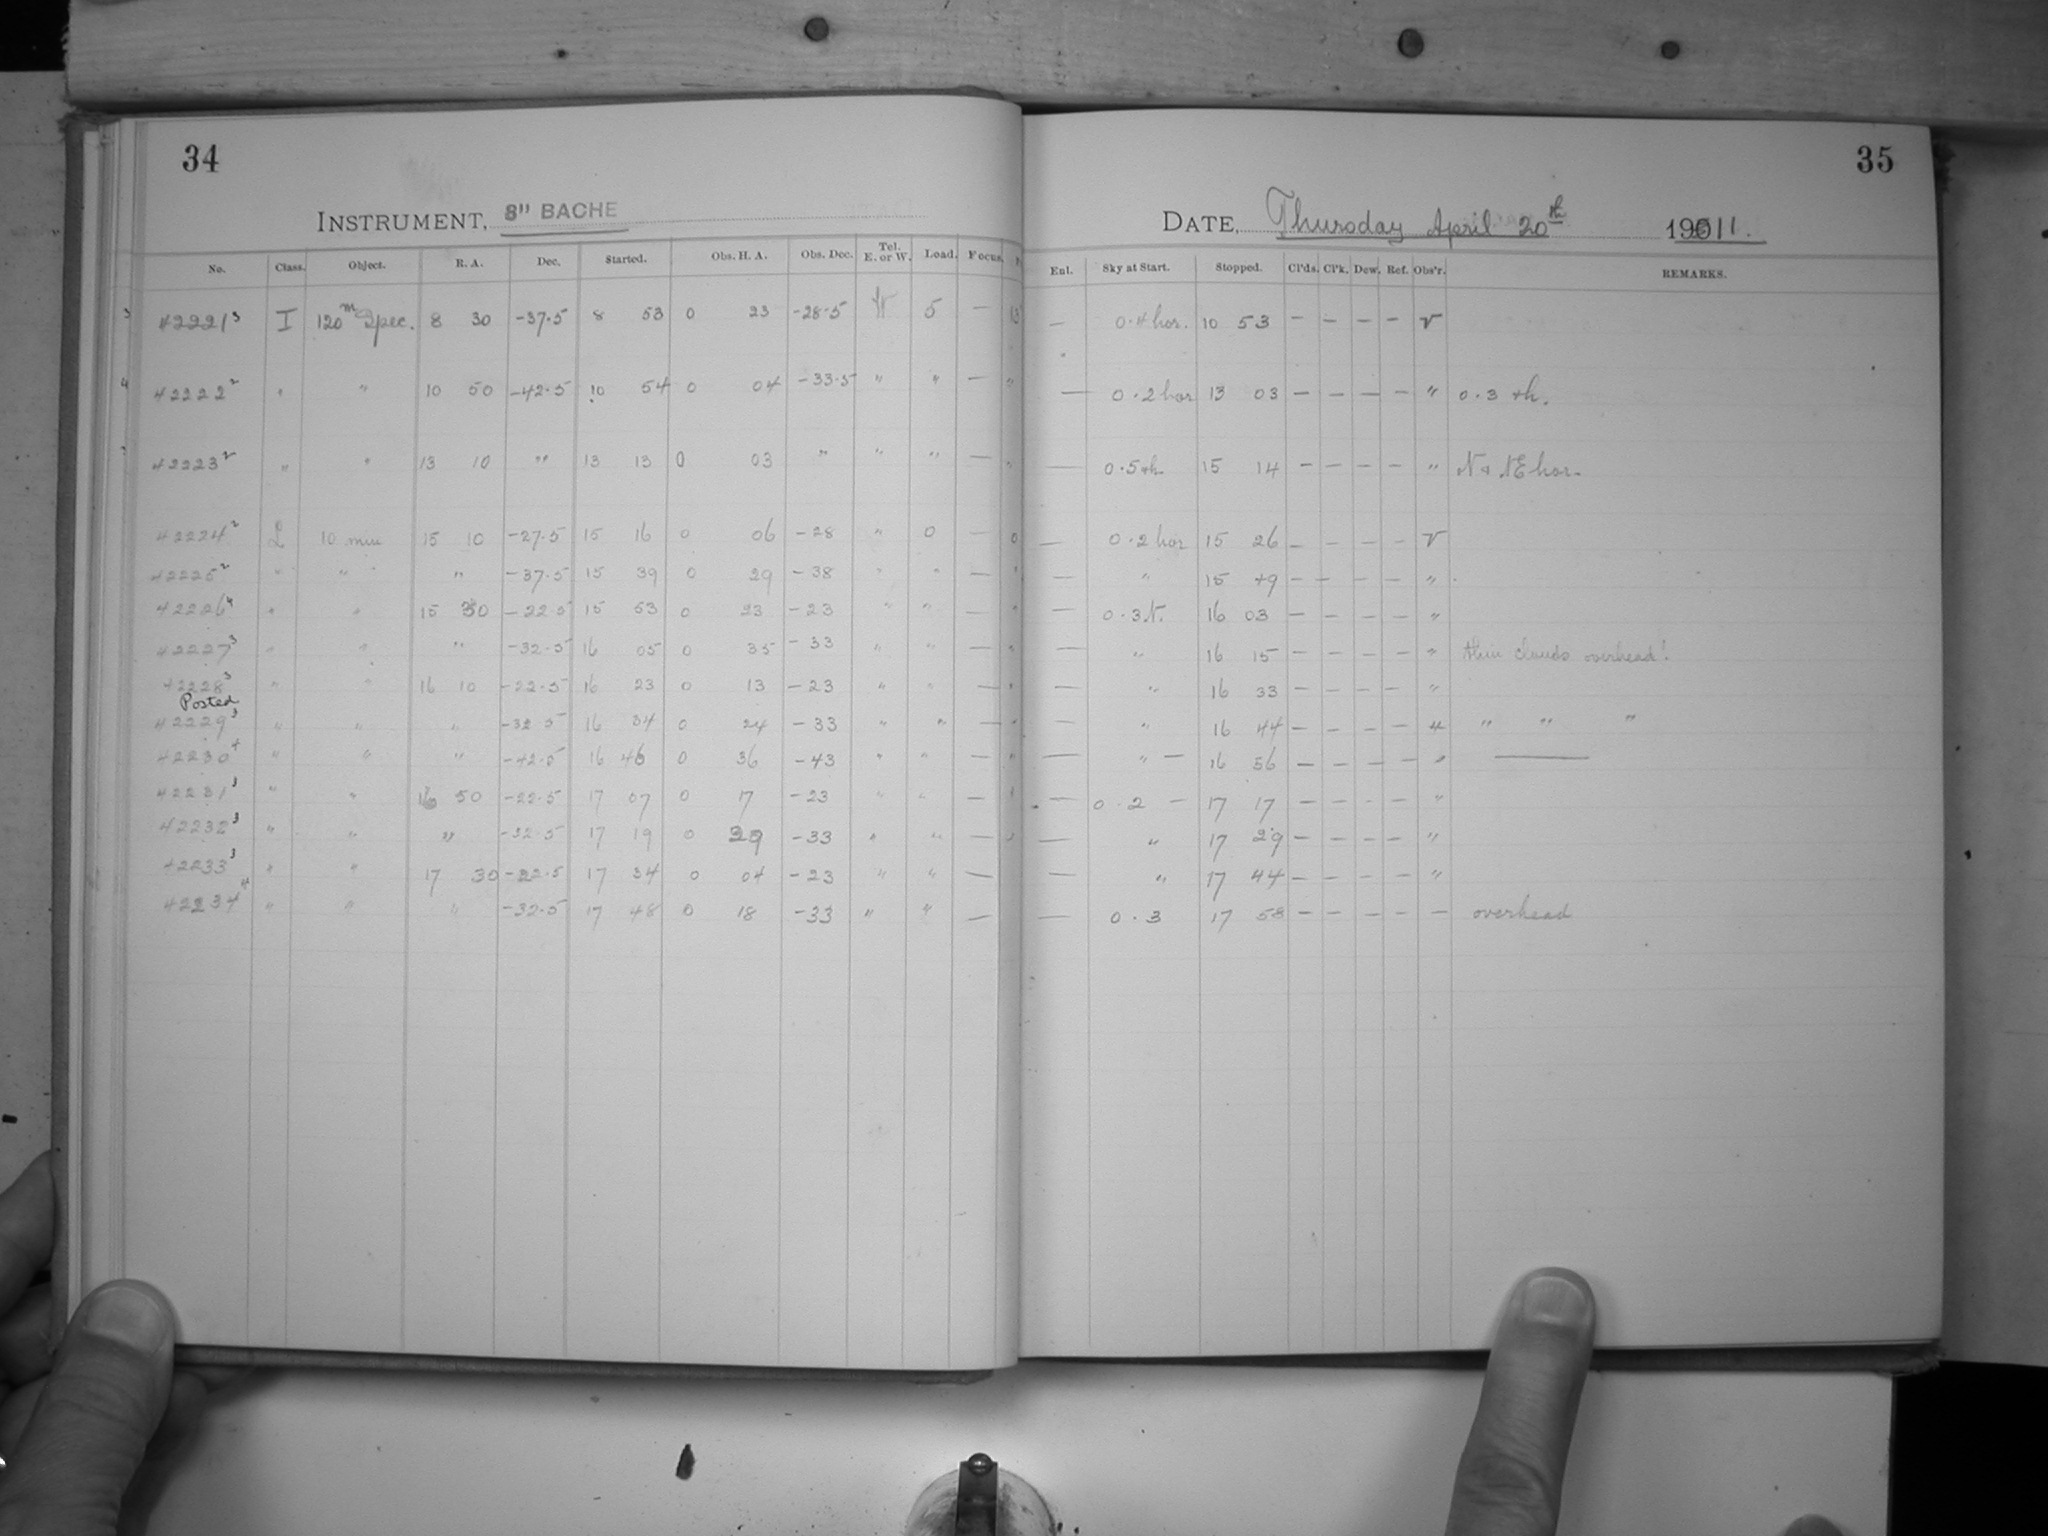 34
INSTRUMENT, 8" BACHE
No. Class. Object. R. A. Dec. Started. Obs. H. A. Obs. Dec. Tel. E. or W. Load. Focus.
42221³ I 120ᵐ Spec. 8 30 -37.5 8 53 0 23 -28.5 W 5 —
42222² " " 10 50 -42.5 10 54 0 04 -33.5 " " —
42223² " " 13 10 " 13 13 0 03 " " " —
42224² L 10 min 15 10 -27.5 15 16 0 06 -28 " 0 —
42225² " " " -37.5 15 39 0 29 -38 " " —
42226⁴ " " 15 30 -22.5 15 53 0 23 -23 " " —
42227³ " " " -32.5 16 05 0 35 -33 " " —
42228³ " " 16 10 -22.5 16 23 0 13 -23 " " —
Posted
42229³ " " " -32.5 16 34 0 24 -33 " " —
42230⁴ " " " -42.5 16 46 0 36 -43 " " —
42231³ " " 16 50 -22.5 17 07 0 17 -23 " " —
42232³ " " " -32.5 17 19 0 29 -33 " " —
42233³ " " 17 30 -22.5 17 34 0 04 -23 " " —
42234⁴ " " " -32.5 17 48 0 18 -33 " " —
35
DATE, Thursday April 20th 1911.
Enl. Sky at Start. Stopped. Cl'ds. Cl'k. Dew. Ref. Obs'r. REMARKS.
— 0.4 hor. 10 53 — — — — V
— 0.2 hor 13 03 — — — — " 0.3 th.
— 0.5 th. 15 14 — — — — " N & NE hor.
— 0.2 hor 15 26 — — — — V
— " 15 49 — — — — "
— 0.3 N. 16 03 — — — — "
— " 16 15 — — — — " thin clouds overhead!
— " 16 33 — — — — "
— " 16 44 — — — — " " " "
— " — 16 56 — — — — " ———
— 0.2 — 17 17 — — — — "
— " 17 29 — — — — "
— " 17 44 — — — — "
— 0.3 17 58 — — — — — overhead